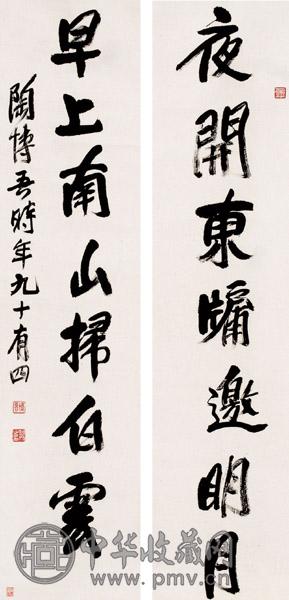 夜開東牖邀明月
早上南山掃白雲
陶博吾時年九十有四
中华收藏网
www.pmv.cn